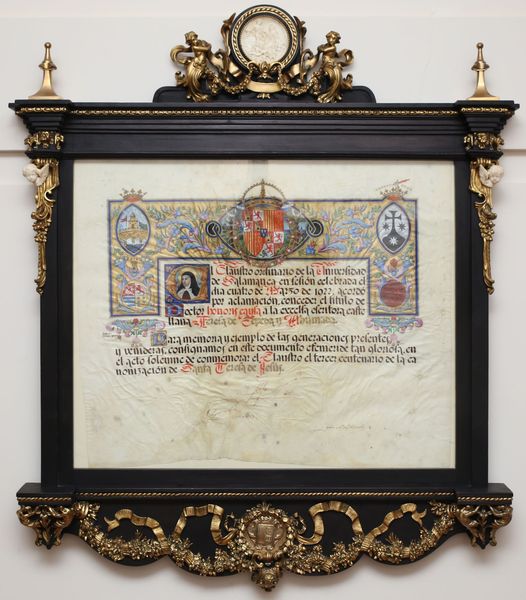 El Claustro ordinario de la Universidad
de Salamanca en sesión celebrada el
día cuatro de Marzo de 1922, acordó
por aclamación, conceder el título de
Doctor honoris causa a la excelsa escritora caste
llana, Teresa de Cepeda y Ahumada.
Para memoria y ejemplo de las generaciones presentes
y venideras, consignamos en este documento efeméride tan gloriosa, en
el acto solemne de conmemorar el Claustro el tercer centenario de la ca
nonización de Santa Teresa de Jesús.